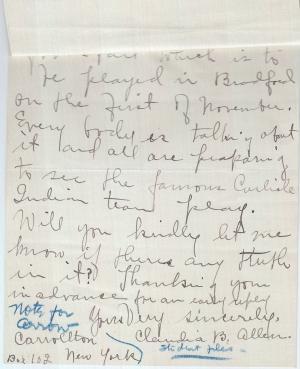 which is to
be played in Bradford
on the first of November.
Every body is talking about
it and all are preparing
to see the famous Carlisle
Indian team play.
Will you kindly let me
know if theres any truth
in it? Thanking you
in advance for an early reply
Notes for
Arrow
Yours very sincerely,
Carrollton Claudia B. Allen.
Box 102 New York
Student files